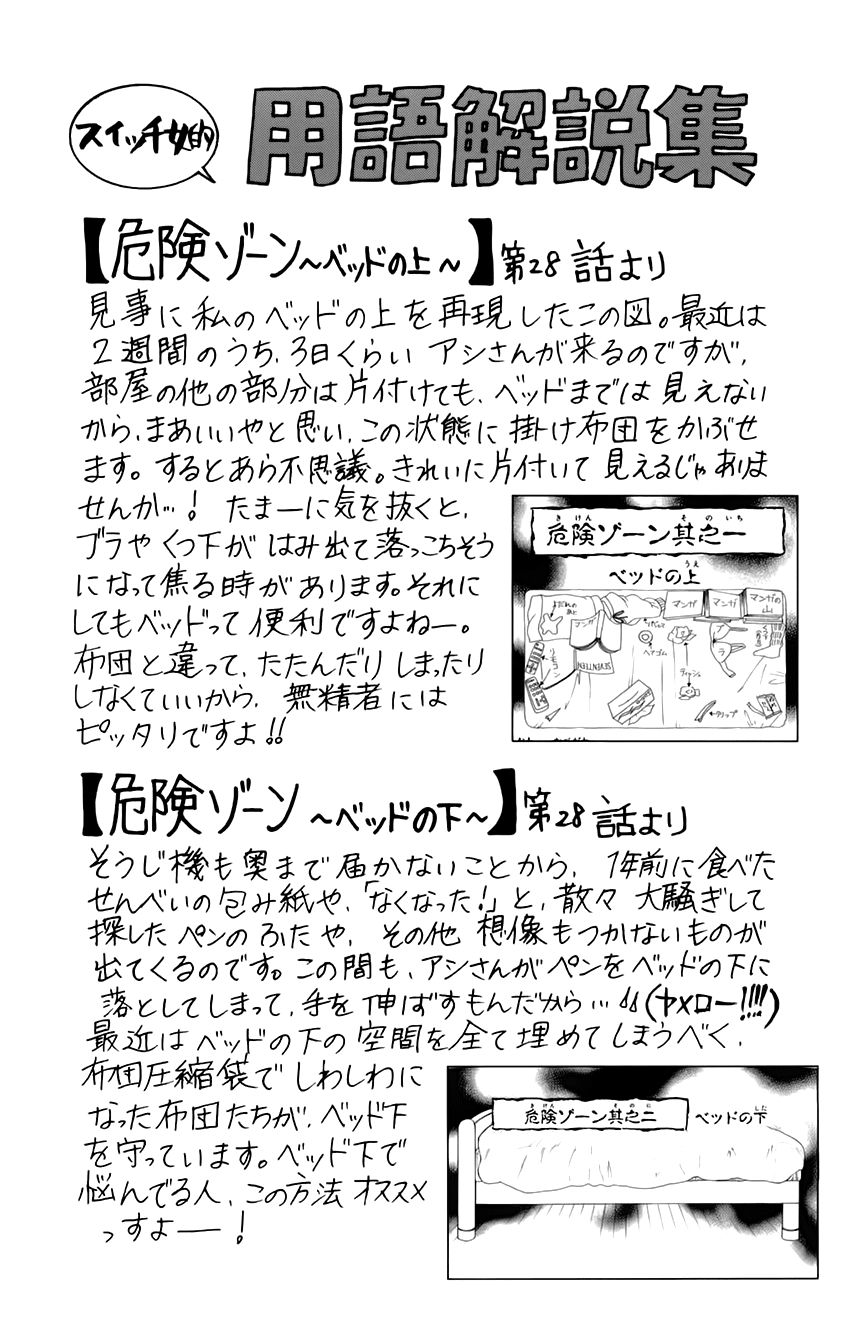 スイッチ女的
用語解説集
【危険ゾーン～ベッドの上～】第28話より
見事に私のベッドの上を再現したこの図。最近は
2週間のうち、3日くらい アシさんが来るのですが、
部屋の他の部分は片付けても、ベッドまでは見えない
から、まあいいやと思い、この状態に掛け布団をかぶせ
ます。するとあら不思議。きれいに片付いて見えるじゃありま
せんか…! たまーに気を抜くと、
ブラやくつ下がはみ出て落っこちそう
になって焦る時があります。それに
してもベッドって便利ですよねー。
布団と違って、たたんだりしまったり
しなくていいから、無精者には
ピッタリですよ!!
危険ゾーン其之一
きけん
そのいち
ベッドの上
うえ
よだれのあと
マンガ
マンガ
マンガ
マンガの山
リモコン
SEVENTEEN
ヘアゴム
ティッシュ
ブラ
クリップ
【危険ゾーン ～ベッドの下～】第28話より
そうじ機も奥まで届かないことから、1年前に食べた
せんべいの包み紙や、「なくなった!」と、散々大騒ぎして
探したペンのふたや、その他 想像もつかないものが
出てくるのです。この間も、アシさんがペンをベッドの下に
落としてしまって、手を伸ばすもんだから…(ヤメロー!!!!)
最近はベッドの下の空間を全て埋めてしまうべく、
布団圧縮袋でしわしわに
なった布団たちが、ベッド下
を守っています。ベッド下で
悩んでる人、この方法オススメ
っすよ――!
危険ゾーン其之二
きけん
そのに
ベッドの下
した